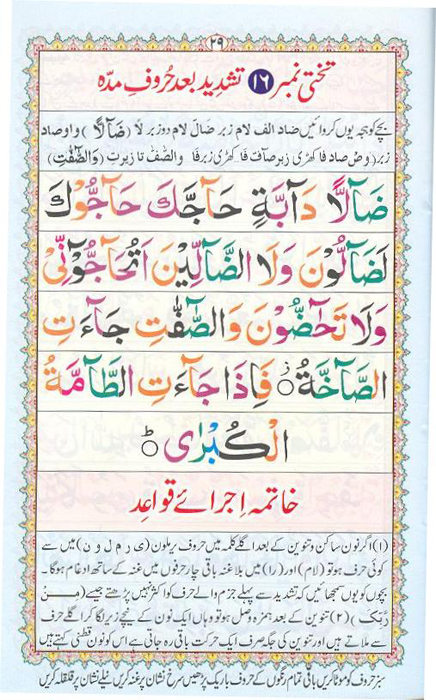 ۲۹
تختی نمبر ۱۶ تشدید بعد حروف مدہ
بچے کو ہجے یوں کروائیں ضاد الف لام زبر ضال لام دو زبر لا (ضَآلًّا) واو صاد
زبر (وص صاد فا کھڑی زبر صآفت فا کھڑی زبر فا والصّٰفّٰ تا زیر تِ (وَالصّٰٓفّٰتِ)
ضَآلًّا دَآبَّةٍ حَآجَّكَ حَآجُّوْكَ
لَضَآلُّوْنَ وَلَا الضَّآلِّيْنَ اَتُحَآجُّوْٓنِّیْ
وَلَا تَحٰٓضُّوْنَ وَالصّٰٓفّٰتِ جَآءَتِ
الصَّآخَّةُ ۝ فَاِذَا جَآءَتِ الطَّآمَّةُ
الْكُبْرٰی ۝ؕ
خاتمہ اجرائے قواعد
(۱) اگر نون ساکن و تنوین کے بعد اگلے کلمہ میں حروف یرملون (ی ر م ل و ن) میں سے
کوئی حرف ہو تو (لام) اور (را) میں بلا غنہ باقی چار حرفوں میں غنہ کے ساتھ ادغام ہوگا۔
بچوں کو یوں سمجھائیں کہ تشدید سے پہلے جزم والے حرف کو اکثر نہیں پڑھتے جیسے (مِنْ
رَّبِّكَ) (۲) تنوین کے بعد ہمزہ وصل ہو تو وہاں ایک نون کے نیچے زیر لگا کر اگلے حرف
سے ملاتے ہیں اور تنوین کی جگہ صرف ایک حرکت باقی رہ جاتی ہے اس کو نون قطنی کہتے ہیں
سبز حروف کو موٹا کریں باقی تمام رنگوں کے حروف باریک پڑھیں سرخ نشان پر غنہ کریں نیلے نشان پر قلقلہ کریں